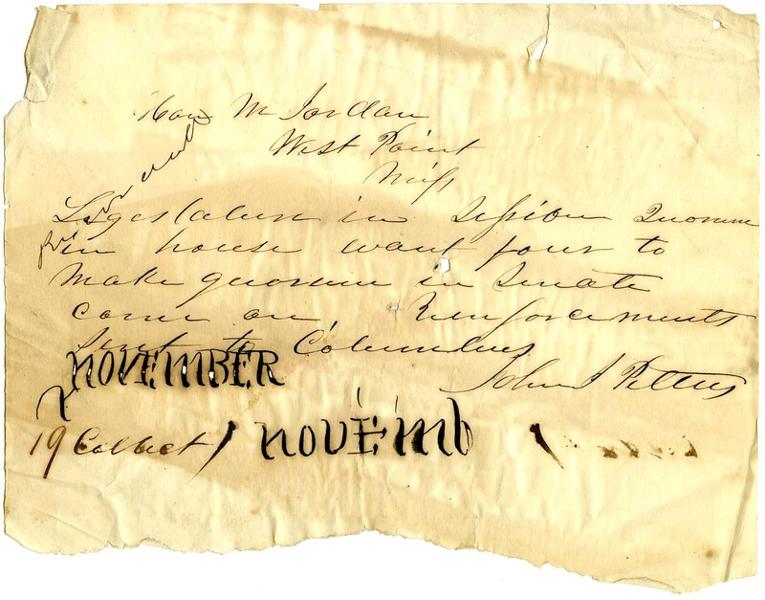 Hon M Jordan
West Point
Miss
Legislature in Session Quorum
in house want four to
make quorum in Senate
come on Reinforcements
sent to Columbus
John J Pettus
NOVEMBER
19 Collect
NOVEMb